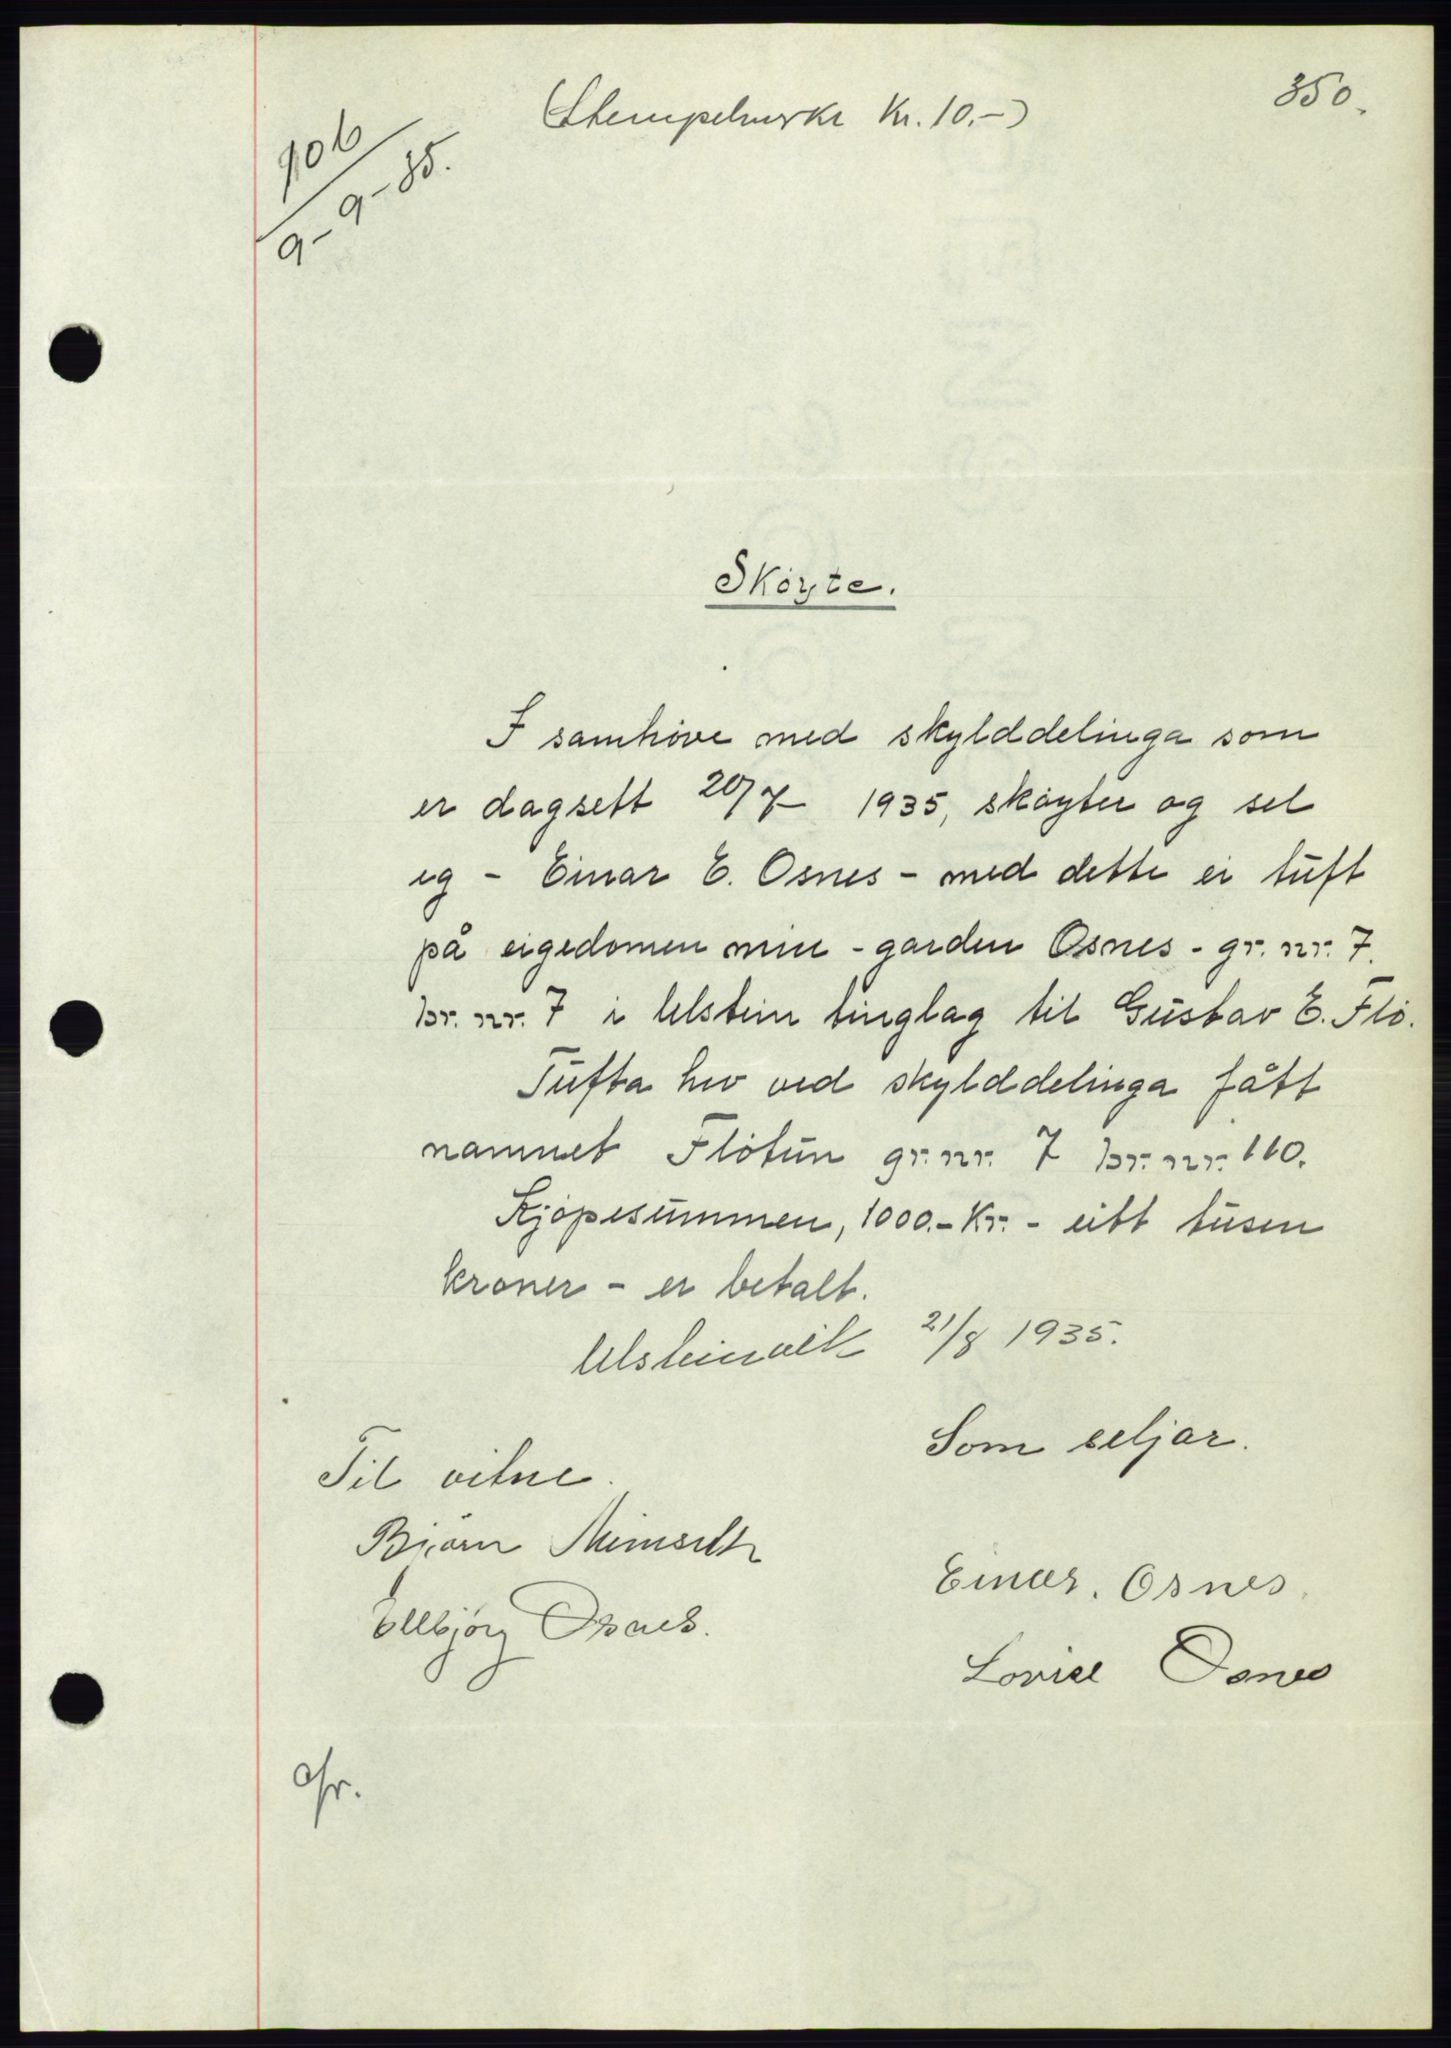 350.
(Stempelmerke Kr. 10.-)
906
9-9-35.
Skøyte.
I samhøve med skylddelinga som
er dagsett 20/7 1935, skøyter og sel
eg - Einar E. Osnes - med dette ei tuft
på eigedomen min - garden Osnes - gr. nr. 7.
br. nr. 7 i Ulstein tinglag til Gustav E. Flø.
Tufta hev ved skylddelinga fått
namnet Fløtun gr. nr. 7 br. nr. 110.
Kjøpesummen, 1000.- Kr. - eitt tusen
kroner - er betalt.
Ulsteinvik 21/8 1935.
Som seljar.
Til vitne.
Bjørn
Einar. Osnes.
Ellbjørg Osnes.
Lovise Osnes